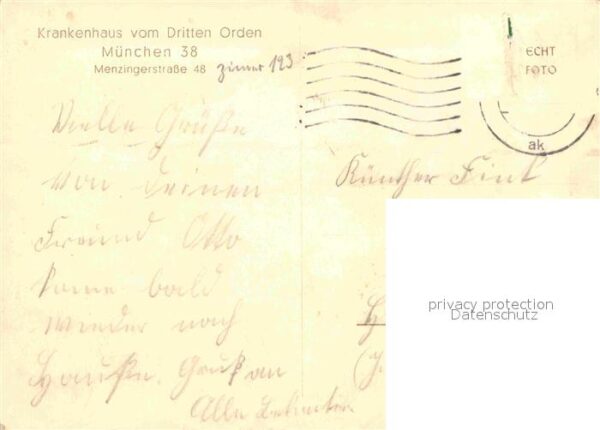 Krankenhaus vom Dritten Orden
München 38
Menzingerstraße 48 Zimmer 123
ECHT
FOTO
ak
Vielle Grüße
von deinen
Freund Otto
kome bald
wieder nach
Hauße. Gruß an
Alle Bekanten
Künther Fink
privacy protection
Datenschutz